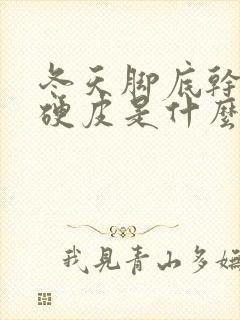 冬天脚底幹
硬皮是什麼
我見青山多嫵